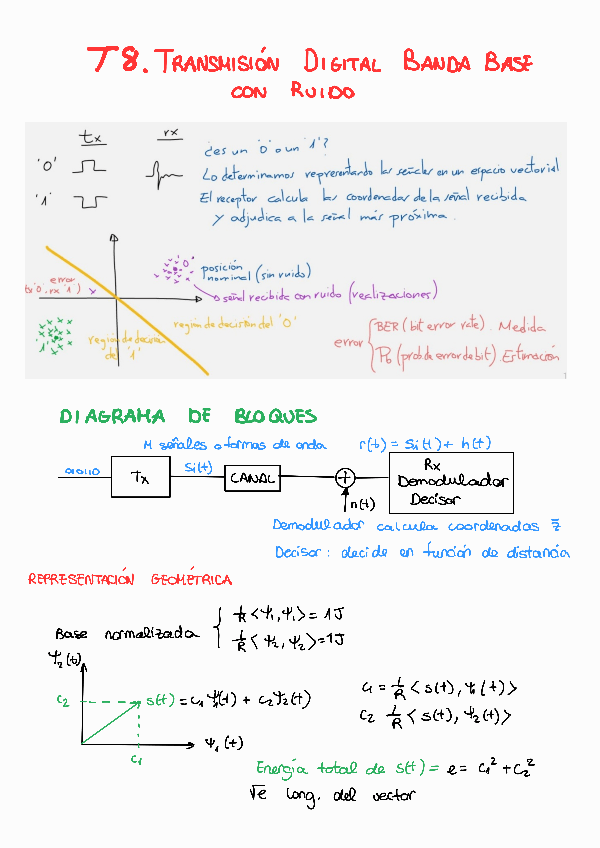 T8. TRANSMISIÓN DIGITAL BANDA BASE
CON RUIDO
tx rx
¿es un '0' o un '1'?
'0'
Lo determinamos representando las señales en un espacio vectorial
'1'
El receptor calcula las coordenadas de la señal recibida
y adjudica a la señal más próxima.
'0'
posición
nominal (sin ruido)
error
tx '0', rx '1')
x
señal recibida con ruido (realizaciones)
región de decisión del '0'
'1'
región de decisión
del '1'
error { BER (bit error rate). Medida
Pb (prob de error de bit). Estimación
1
DIAGRAMA DE BLOQUES
M señales o formas de onda r(t) = Si(t) + n(t)
010110 Tx Si(t) CANAL + Rx
Demodulador
Decisor
n(t)
Demodulador calcula coordenadas z̄
Decisor: decide en función de distancia
REPRESENTACIÓN GEOMÉTRICA
Base normalizada { 1/R <Ψ1, Ψ1> = 1J
1/R <Ψ2, Ψ2> = 1J
Ψ2(t)
C2 s(t) = C1 Ψ1(t) + C2 Ψ2(t)
C1 = 1/R < s(t), Ψ1(t) >
C2 1/R < s(t), Ψ2(t) >
C1 Ψ1(t)
Energía total de s(t) = e = C1² + C2²
√e long. del vector